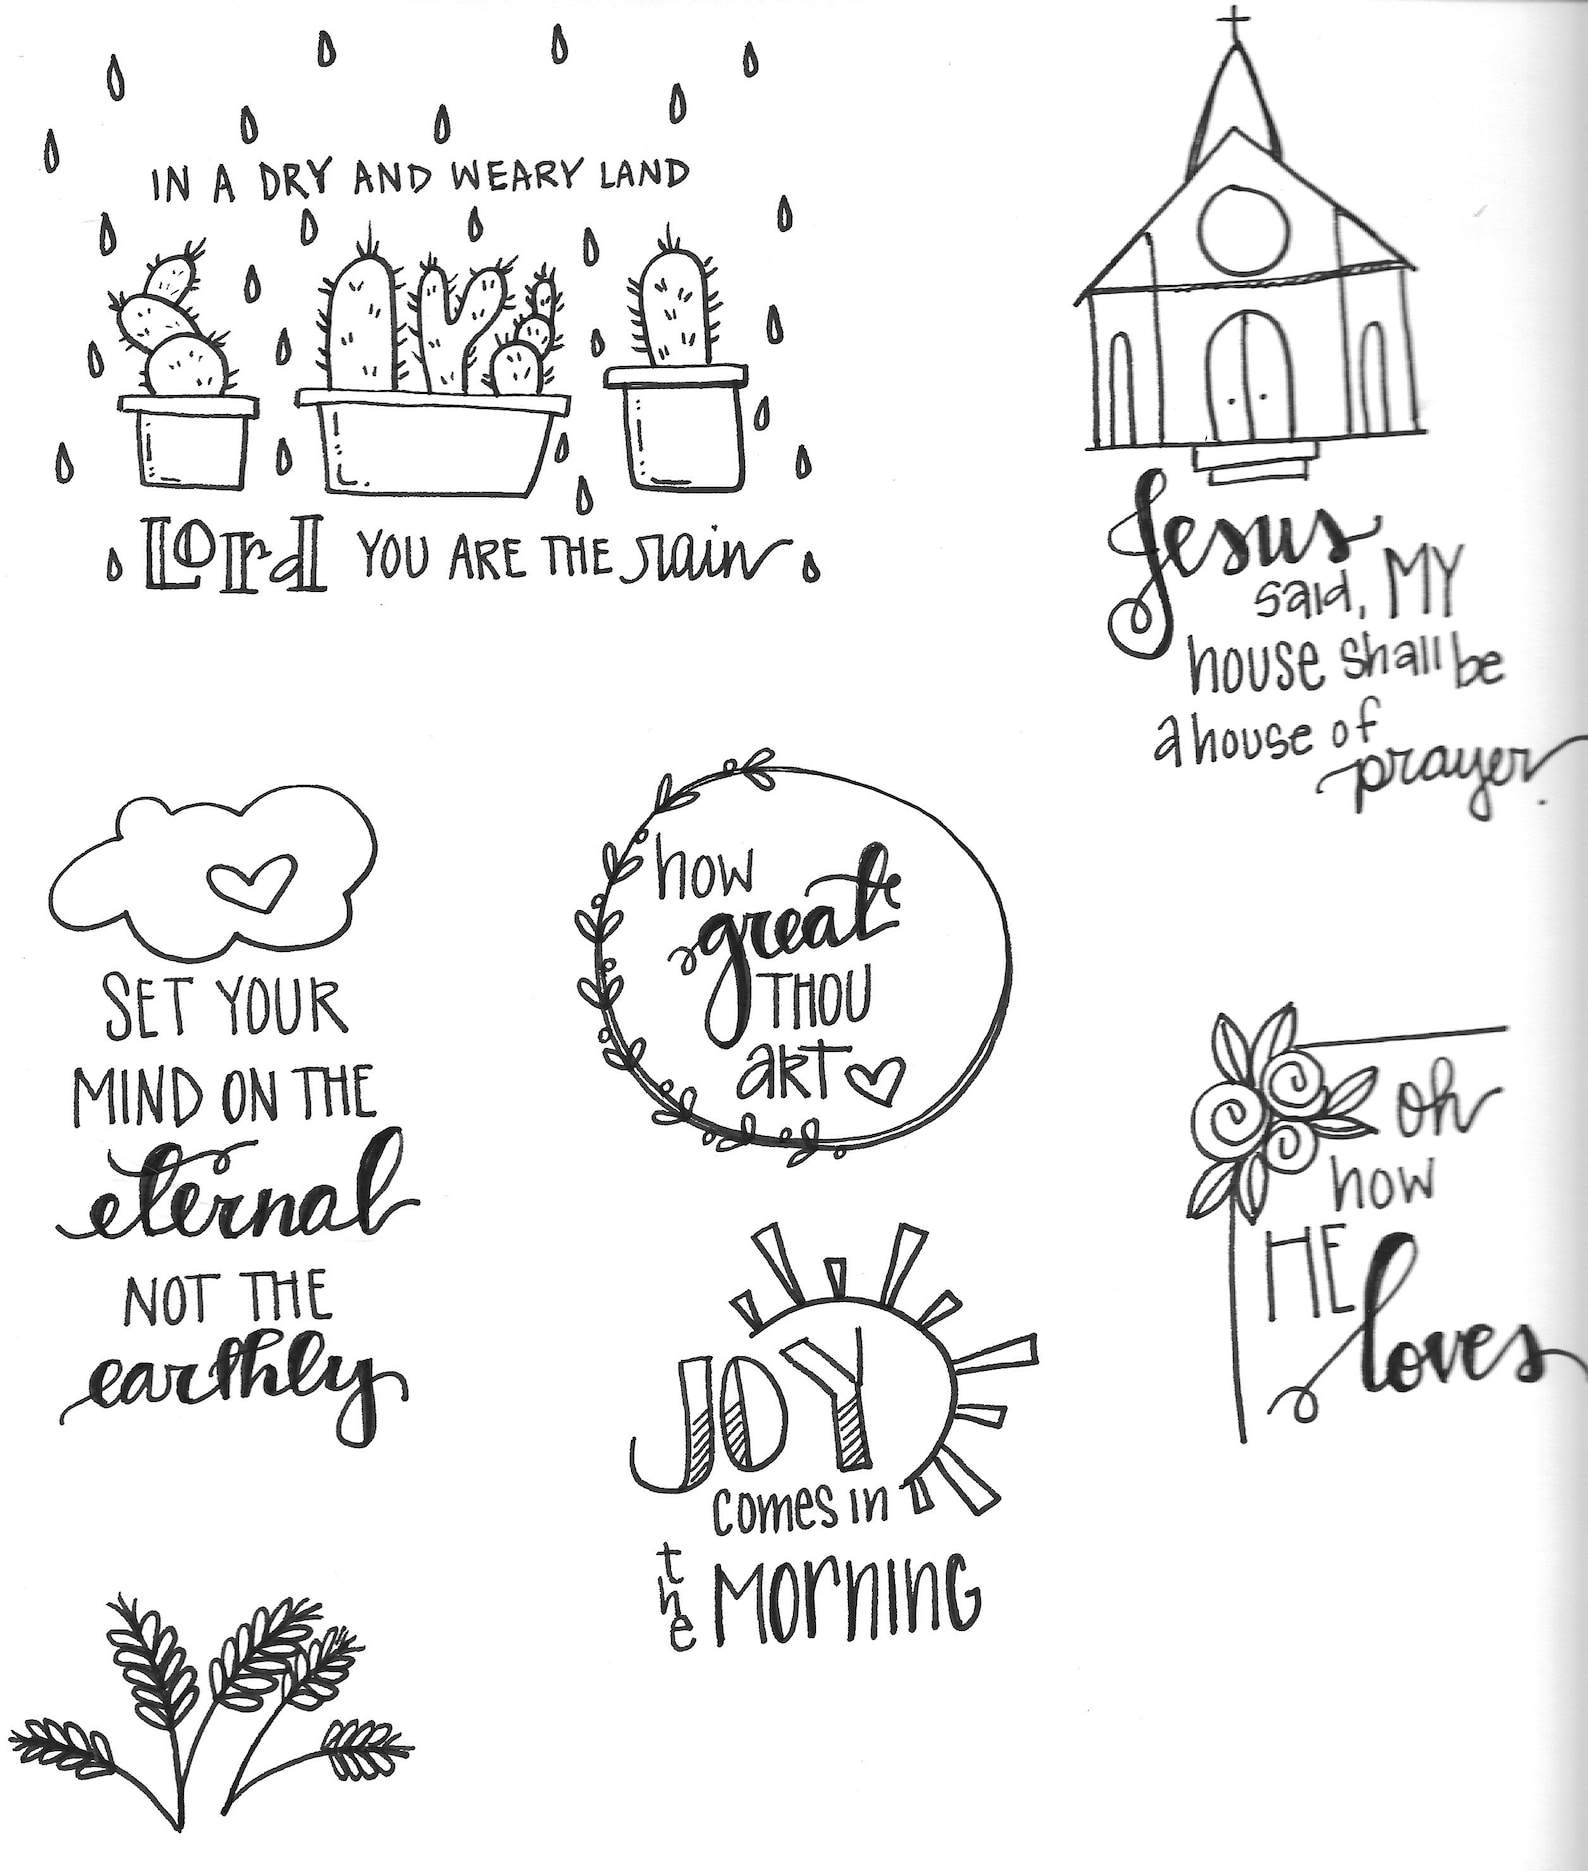 IN A DRY AND WEARY LAND
Lord YOU ARE THE rain
Jesus
said, MY
house shall be
a house of
prayer.
SET YOUR
MIND ON THE
eternal
NOT THE
earthly
how
great
THOU
ART
oh
how
HE
loves
JOY
comes in
the MORNING